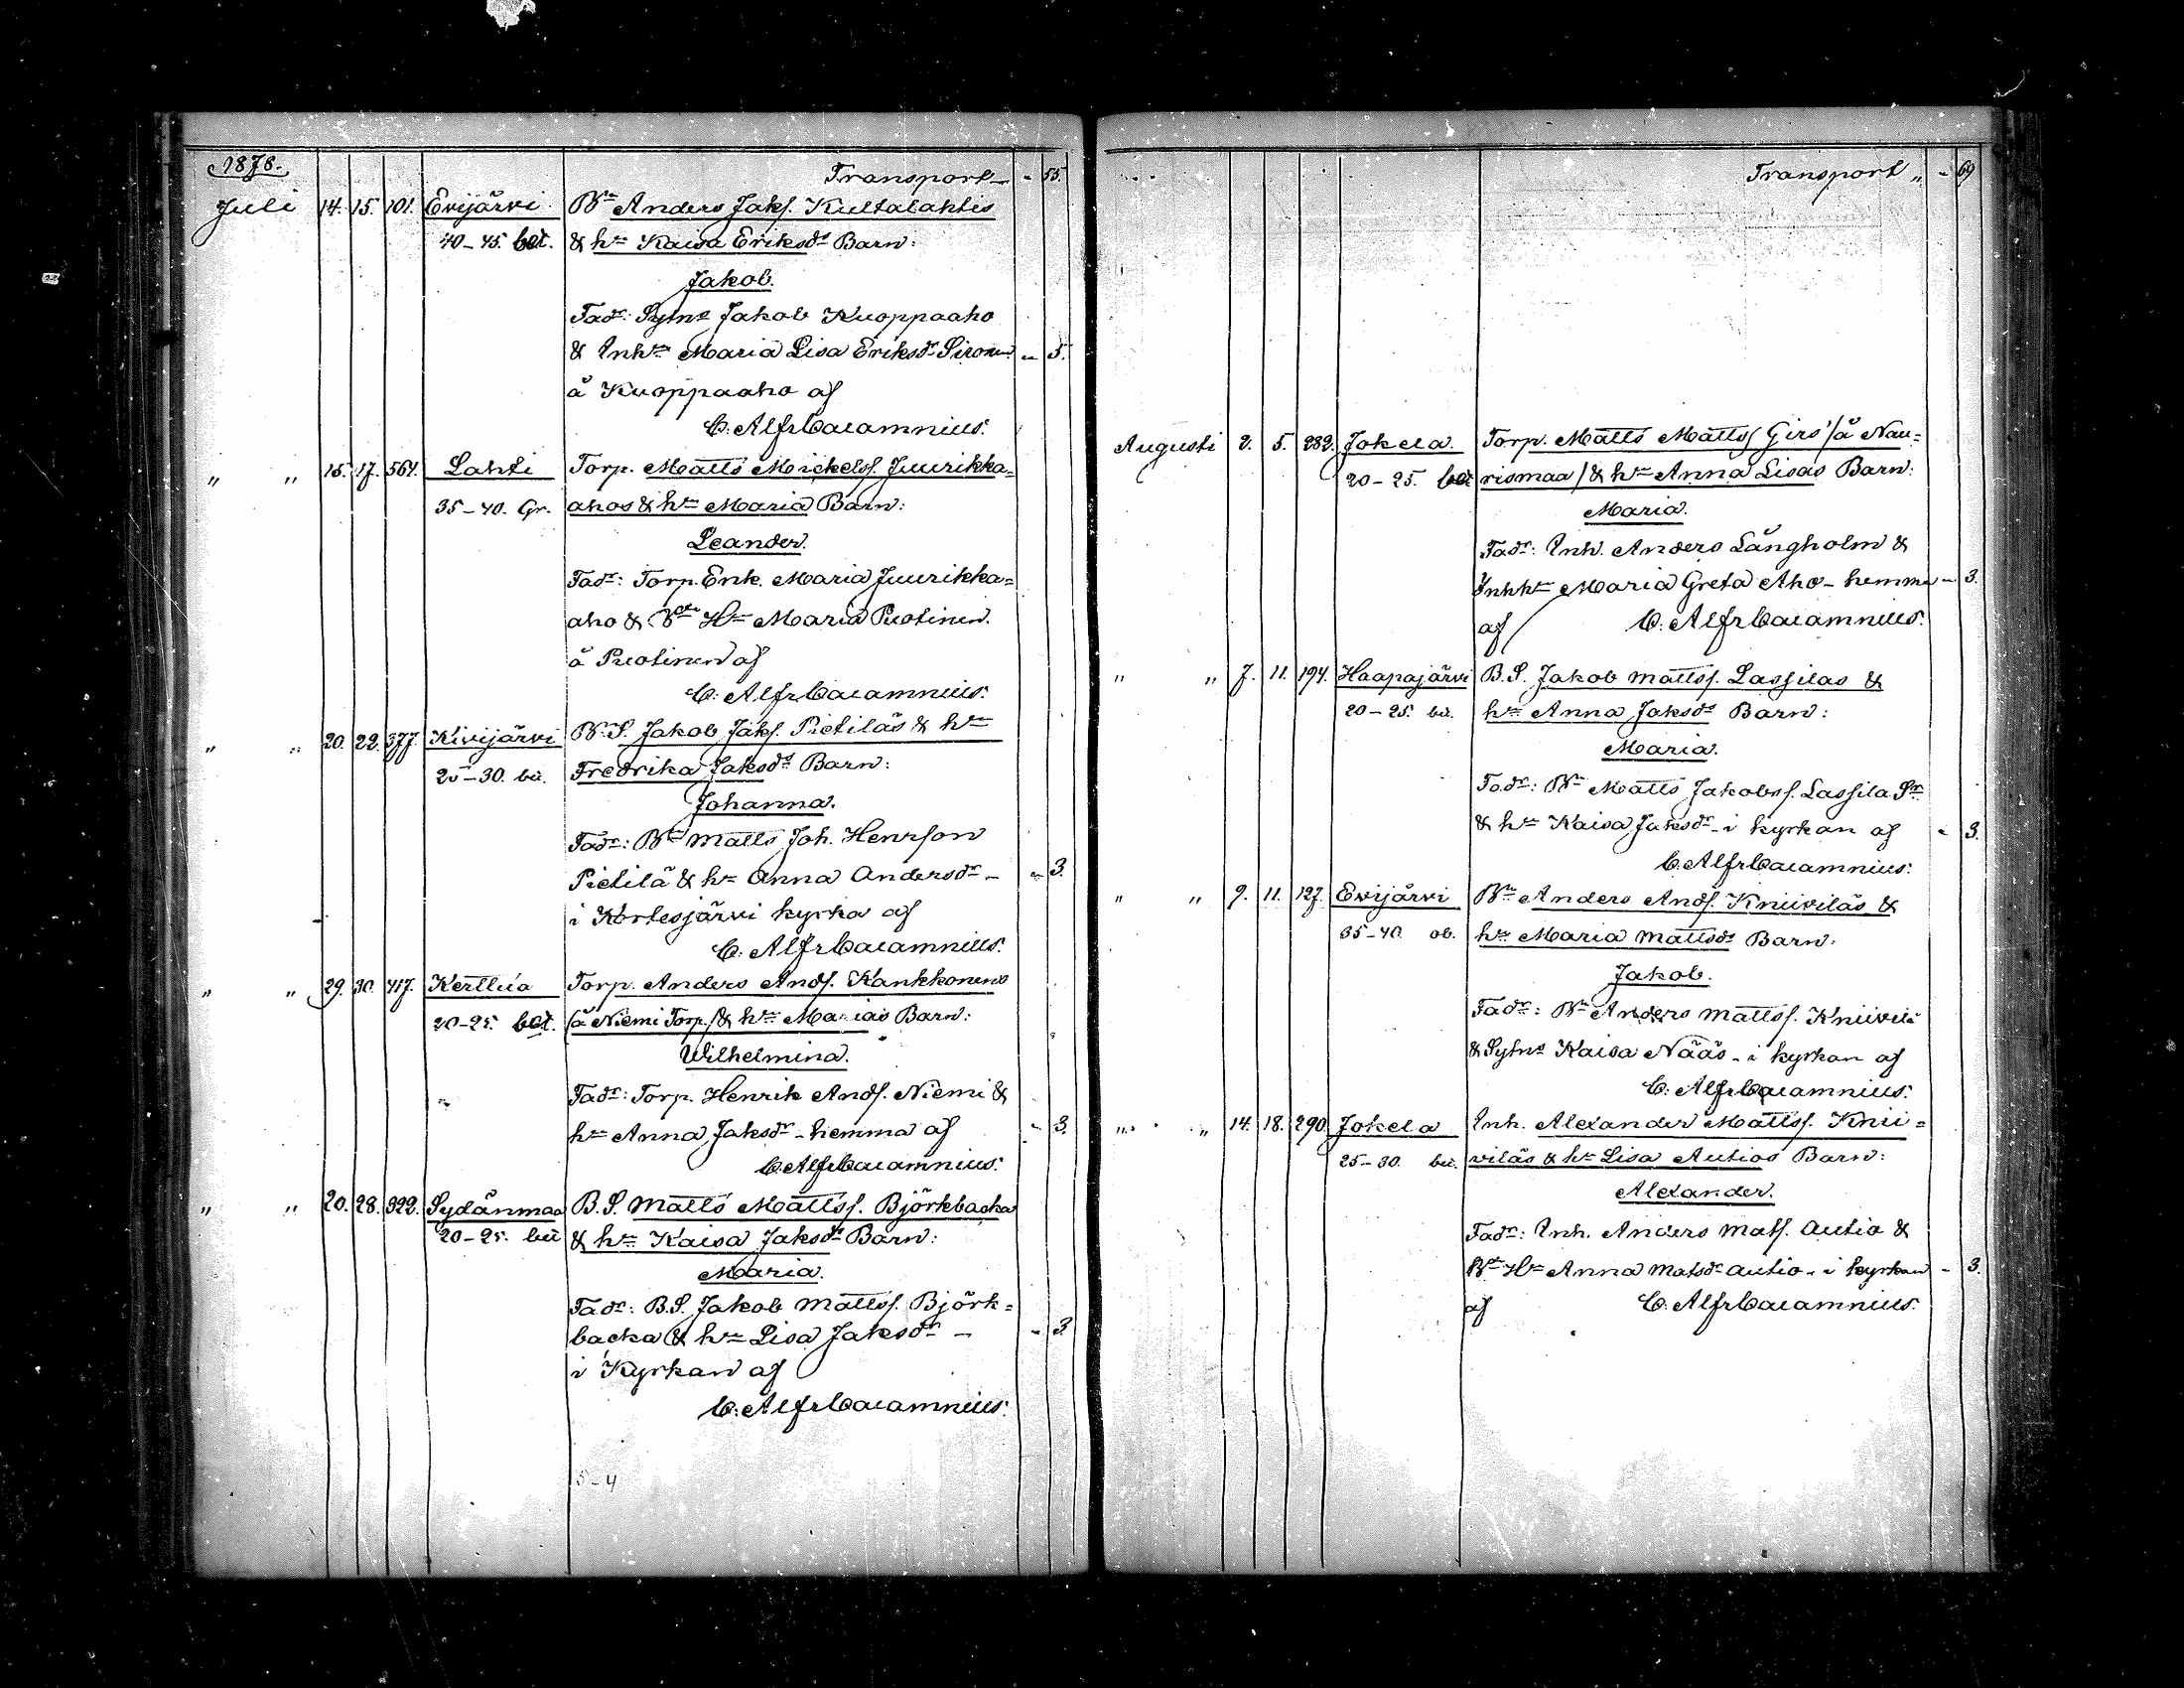 1878. Transport - 55.
Juli 14. 15. 101. Evijärvi Bn Anders Jaks. Kultalahtis
40-45. bet. & hu Kaisa Eriksdr Barn:
Jakob.
Fadr: Sytn. Jakob Kuoppaaho
& Inhn Maria Lisa Eriksdr Sironen - 5.
å Kuoppaaho af
C. Alfr Cajamnius.
„ „ 15. 17. 561. Lahti Torp. Matts Mickelss. Juurikka=
35-40. Gr. ahos & hu Maria Barn:
Leander.
Fadr: Torp. Enk. Maria Juurikka=
aho & Hn Maria Puotinen
å Puotinen af
C. Alfr Cajamnius.
„ „ 20. 22. 377. Kivijärvi B.S. Jakob Jaks. Pietiläs & hu
25-30. bet. Fredrika Jaksdr Barn:
Johanna.
Fadr: Bn Matts Joh. Henrson
Pietilä & hu Anna Andersdr - - 3.
i Kortesjärvi kyrka af
C. Alfr Cajamnius.
„ „ 29. 30. 417. Kerttua Torp. Anders Ands. Kankkonens
20-25. bet. /å Niemi Torp./ & hu Marias Barn:
Wilhelmina.
Fadr: Torp. Henrik Ands. Niemi &
hu Anna Jaksdr - hemma af - 3.
C. Alfr Cajamnius.
„ „ 20. 28. 322. Sydänmaa B.S. Matts Mattss. Björkbacka
20-25. bet & hu Kaisa Jaksdr Barn:
Maria.
Fadr: B.S. Jakob Mattss. Björk=
backa & hu Lisa Jaksdr - - 3.
i Kyrkan af
C. Alfr Cajamnius.
5-4
Transport „ - 69
Augusti 2. 5. 282. Jokela. Torp. Matts Matts/Girs'/å Nau=
20-25. bet rismaa/ & hu Anna Lisas Barn:
Maria.
Fadr: Inh. Anders Långholm &
Inhhu Maria Greta Aho - hemma - 3.
af C. Alfr Cajamnius.
„ „ 7. 11. 194. Haapajärvi B.S. Jakob Mattss. Lassilas &
20-25. bet. hu Anna Jaksdr Barn:
Maria.
Fadr: Bn Matts Jakobss. Lassila Sr.
& hu Kaisa Jaksdr - i kyrkan af - 3.
C. Alfr Cajamnius.
„ „ 9. 11. 127. Evijärvi Bn Anders Ands. Kniiviläs &
35-40. ob. hu Maria Mattsdr Barn:
Jakob.
Fadr: Bn Anders Mattss. Kniivilä
& Sytn. Kaisa Nääs - i kyrkan af
C. Alfr Cajamnius.
„ „ 14. 18. 290. Jokela Inh. Alexander Mattss. Knii=
25-30. bet. viläs & hu Lisa Autios Barn:
Alexander.
Fadr: Inh. Anders Mats. Autio &
Hn Anna Matsdr Autio - i kyrkan - 3.
af C. Alfr Cajamnius.